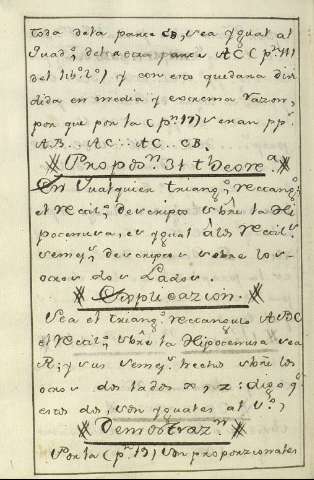 toda dela parte CB, sea ygual al
Quadº del otra parte AC (pn. 11
del libº 2º) y con esto quedara divi
dida en media y extrema razon,
por que por la (pn. 17) seran ppˢ
AB .. AC :: AC .. CB.
Propósn. 31 theorea.
En Qualquier triangº rectangº
el rectilº descripto sbre la Hi
potenusa, es ygual alos rectilˢ
semejˢ descriptos sobre los
otros dos Lados.
Explicazion.
Sea el triangº rectangulo ABC
el rectilº sbre la Hipotenusa sea
R; y sus semejˢ hechos sbre los
otros dos lados x, z: digo qe
estos dos, son yguales al
Demostrazn.
Por la (pn. 19) son proporzionales